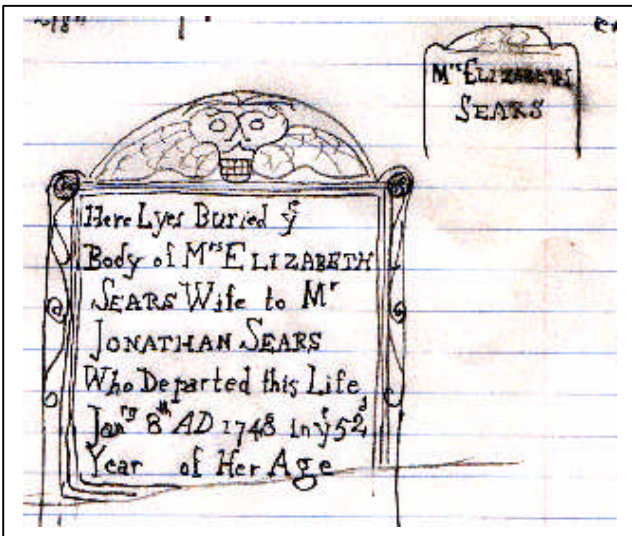 Mrs ELIZABETH
SEARS
Here Lyes Buried ye
Body of Mrs ELIZABETH
SEARS Wife to Mr
JONATHAN SEARS
Who Departed this Life
Janry 8th AD 1748 in ye 52d
Year of Her Age